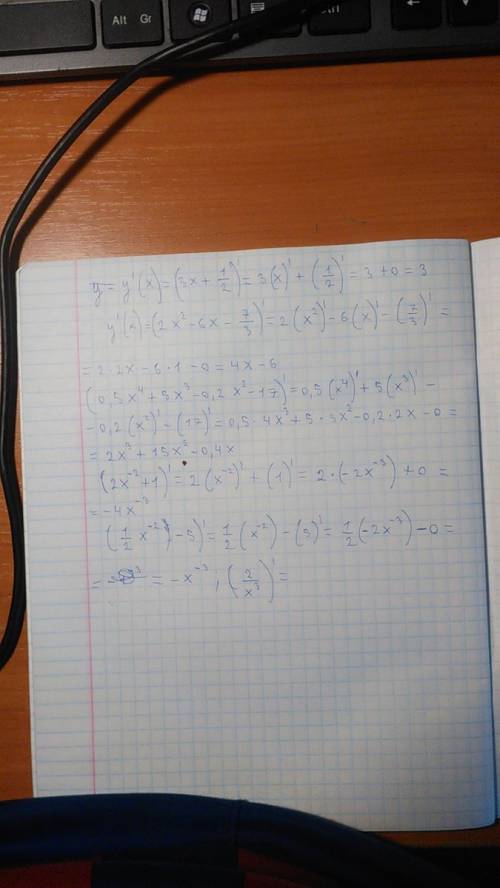 Alt Gr
Ctrl
y = y'(x) = (3x + 1/2)' = 3(x)' + (1/2)' = 3 + 0 = 3
y'(x) = (2x² - 6x - 7/3)' = 2(x²)' - 6(x)' - (7/3)' =
= 2·2x - 6·1 - 0 = 4x - 6
(0,5x⁴ + 5x³ - 0,2x² - 17)' = 0,5(x⁴)' + 5(x³)' -
- 0,2(x²)' - (17)' = 0,5·4x³ + 5·3x² - 0,2·2x - 0 =
= 2x³ + 15x² - 0,4x
(2x⁻² + 1)' = 2(x⁻²)' + (1)' = 2·(-2x⁻³) + 0 =
= -4x⁻³
(1/2 x⁻² - 5)' = 1/2 (x⁻²) - (5)' = 1/2 (-2x⁻³) - 0 =
= = -x⁻³, (2/x³)' =